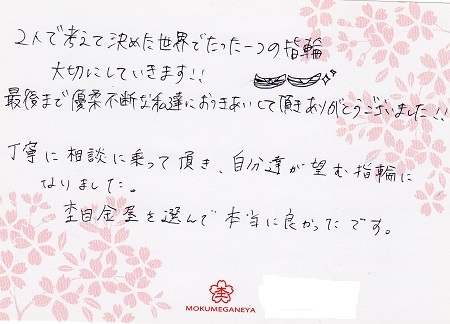 2人で考えて決めた世界でたった一つの指輪
大切にしていきます!!
最後まで優柔不断な私達におつきあいして頂きありがとうございました!!
丁寧に相談に乗って頂き、自分達が望む指輪に
なりました。
杢目金屋を選んで本当に良かったです。
MOKUMEGANEYA